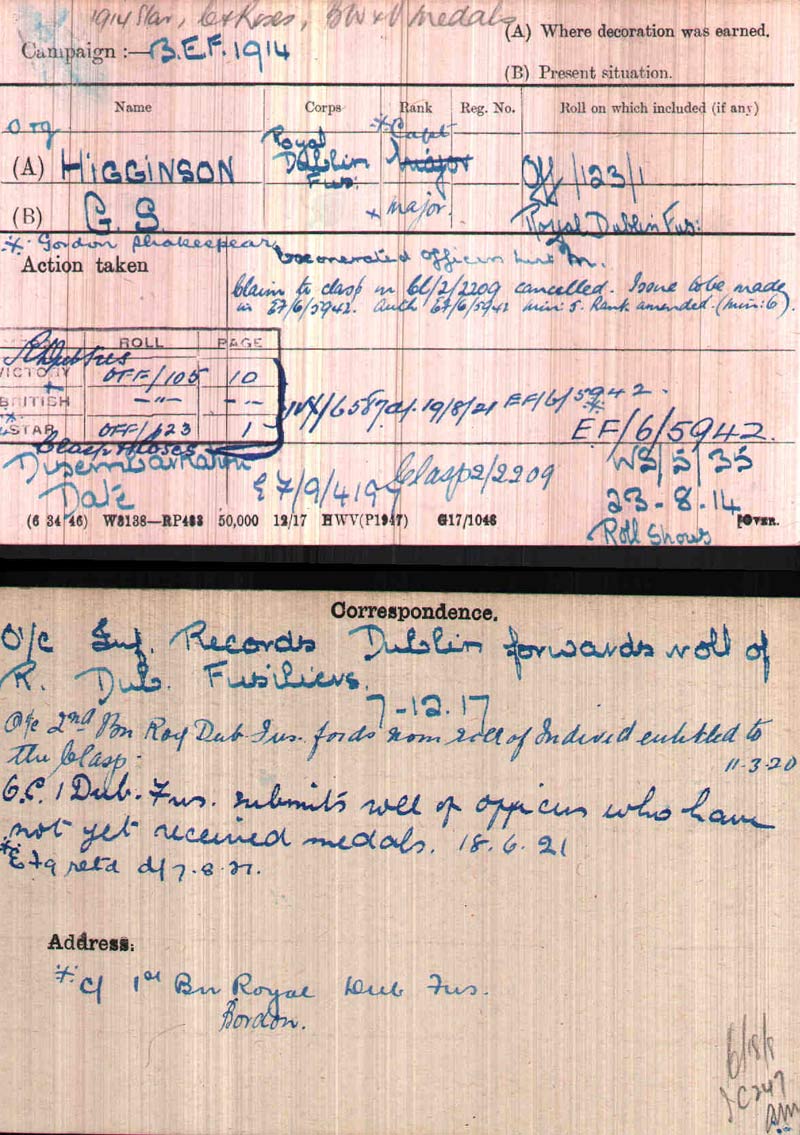 1914 Star, C & Roses, BW & V medals
(A) Where decoration was earned.
Campaign :— B.E.F. 1914
(B) Present situation.
Name Corps Rank Reg. No. Roll on which included (if any)
(A) HIGGINSON Royal Dublin Fus. * Capt Major Off/123/1
(B) G. S. * major. Royal Dublin Fus:
* Gordon Shakespear
Action taken officers
Claim to clasp in Cl/2/2209 cancelled. Issue to be made
in E7/6/5942. Auth E7/6/5942 min: 5. Rank amended. (min: 6).
ROLL PAGE
VICTORY OFF/105 10
BRITISH —"— —"—
* STAR OFF/123 1
IVX/6587 d/. 19/8/21 EF/6/5942.
* EF/6/5942.
Clasp & Roses
Disembarkation
Date
E7/9/419 Clasp 2/2209
WS/5/35
23-8-14
Roll Shows
(6 34 46) W3138—RP483 50,000 12/17 HWV(P1947) G17/1046 [OVER.
Correspondence.
O/c Inf. Records Dublin forwards roll of
R. Dub. Fusiliers.
7-12.17
O/c 2nd Bn Roy Dub Fus. fords nom roll of Individ entitled to
the Clasp.
11-3-20
O.C. 1 Dub. Fus. submits roll of officers who have
not yet received medals. 18.6.21
retd d/7.8.21.
Address:
* C/ 1st Bn Royal Dub Fus.
Bordon.
6/8/8